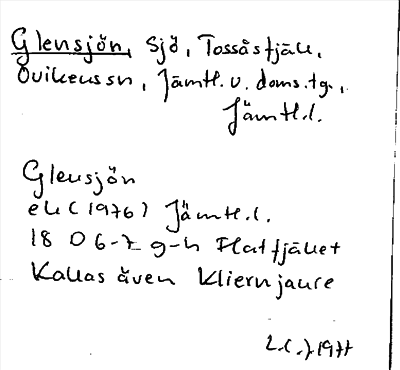 Glensjön, Sjö, Tossåsfjäll,
Ovikens sn, Jämtl. v. doms.tg.,
Jämtl.l.
Glensjön
ek (1976) Jämtl.l.
18 D 6-7 g-h Flatfjället
Kallas även Kliernjaure
1977